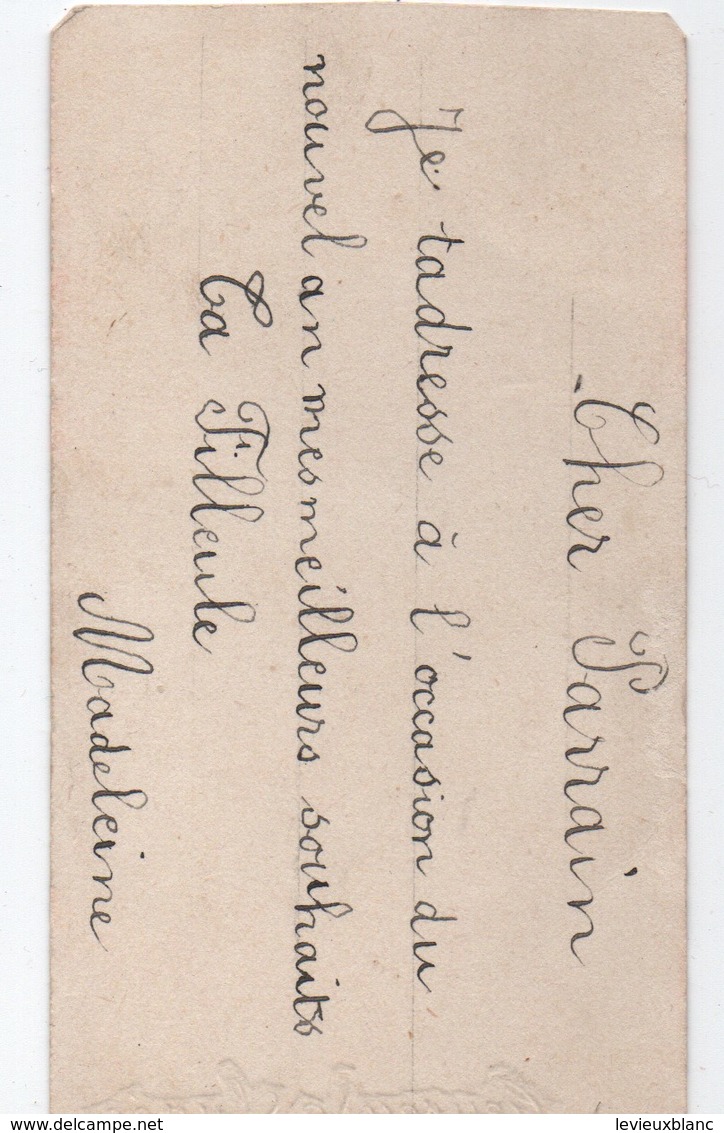 Cher Parrain
Je tadresse à l'occasion du
nouvel an mes meilleurs souhaits
Ta Filleule
Madeleine
delcampe.net
levieuxblanc